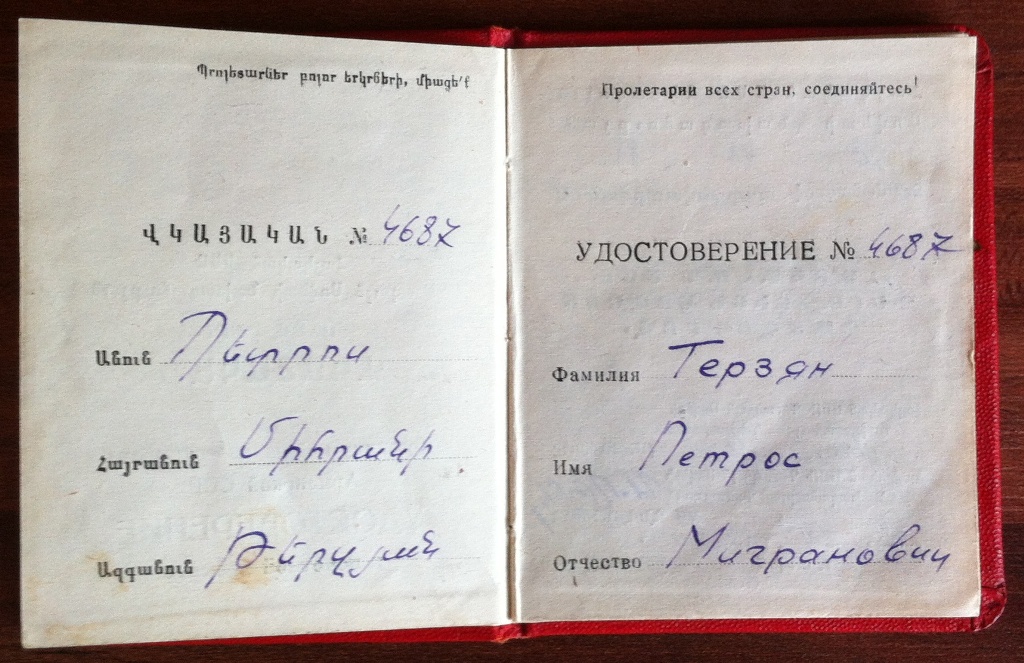 Պրոլետարներ բոլոր երկրների, միացե՛ք
ՎԿԱՅԱԿԱՆ № 4687
Անուն Պետրոս
Հայրանուն Միհրանի
Ազգանուն Թերզյան
Пролетарии всех стран, соединяйтесь!
УДОСТОВЕРЕНИЕ № 4687
Фамилия Терзян
Имя Петрос
Отчество Мигранович